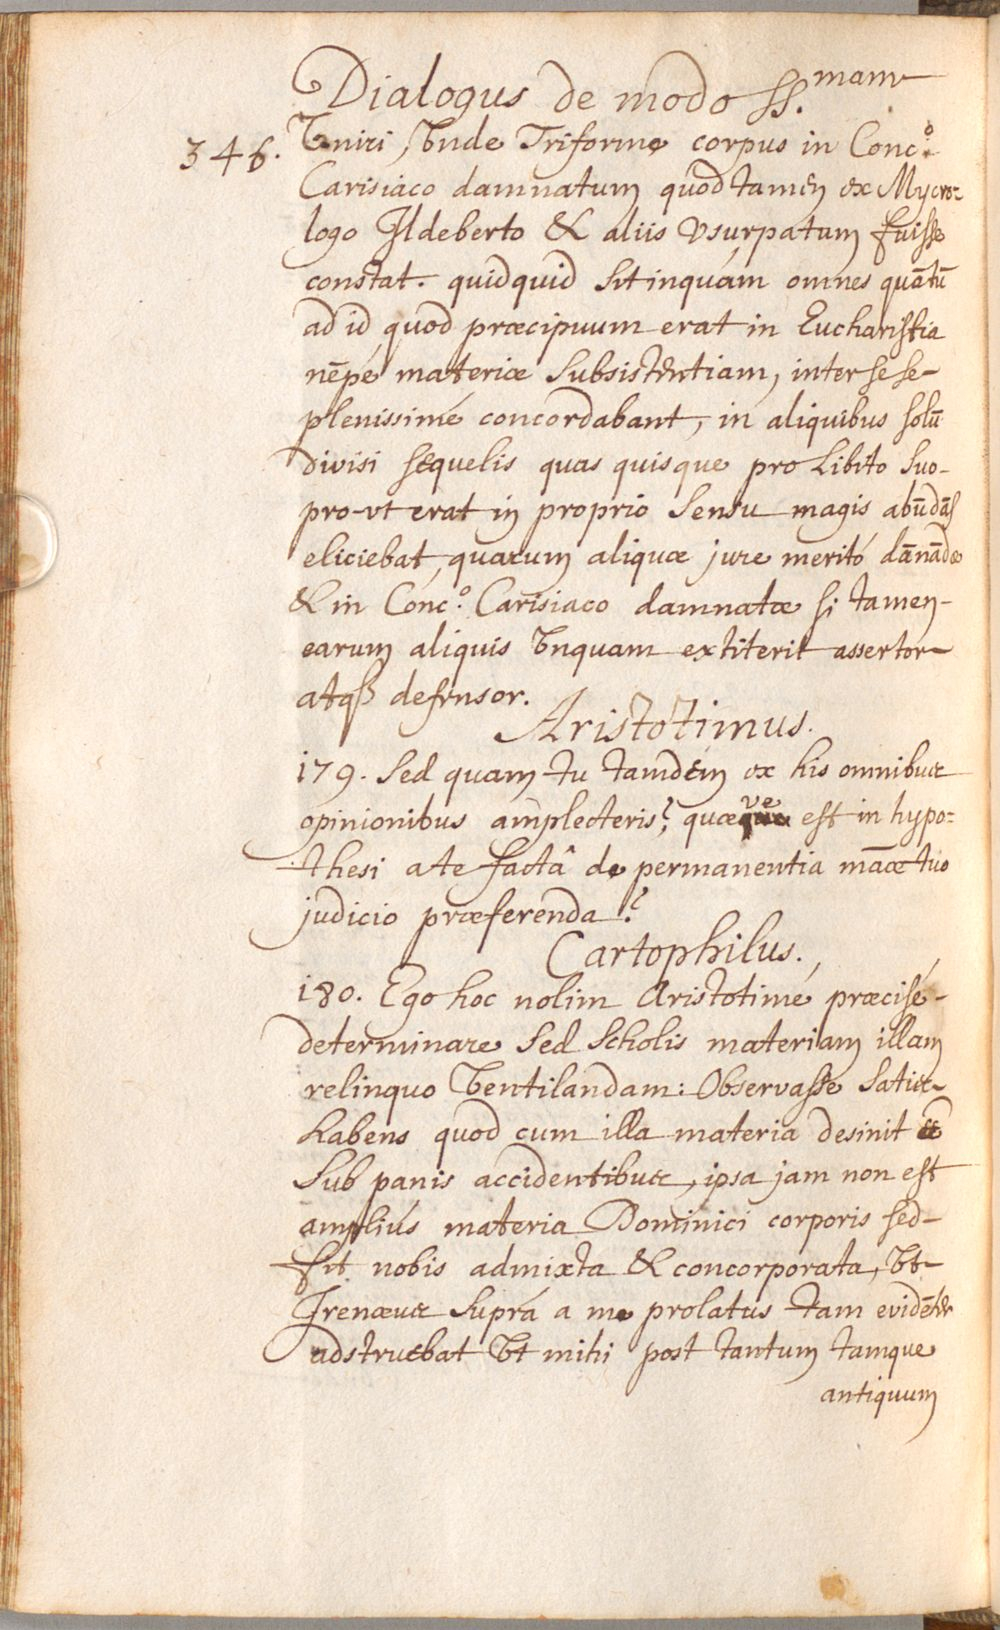 Dialogus de modo ss.mam
346.
Vniri, Vnde Triforme corpus in Conc.o
Carisiaco damnatum quod tamen ex Mycro=
logo Ildeberto & aliis Vsurpatum fuisse
constat. quidquid sit inquam omnes quātū
ad id quod præcipuum erat in Eucharistia
nēpé materiæ subsistentiam, inter se se-
plenissimé concordabant, in aliquibus solū
divisi sequelis quas quisque pro libito suo-
pro-vt erat in proprio sensu magis abūdās
eliciebat, quarum aliquæ jure meritó dānādæ
& in Conc.o Carisiaco damnatæ si tamen-
earum aliquis Vnquam extiterit assertor-
atqȝ defensor.
Aristotimus.
179. Sed quam tu tandem ex his omnibus
opinionibus amplecteris? quæve est in hypo=
thesi a te factâ de permanentia māæ tuo
judicio præferenda?
Cartophilus.
180. Ego hoc nolim Aristotimé præcisé-
determinare sed scholis materiam illam
relinquo Ventilandam: Observasse satius
habens quod cum illa materia desinit
sub panis accidentibus, ipsa jam non est
ampliús materia Dominici corporis sed-
fit nobis admixta & concorporata, Vt-
Irenæus suprá a me prolatus tam evidēter
adstruebat Vt mihi post tantum tamque
antiquum